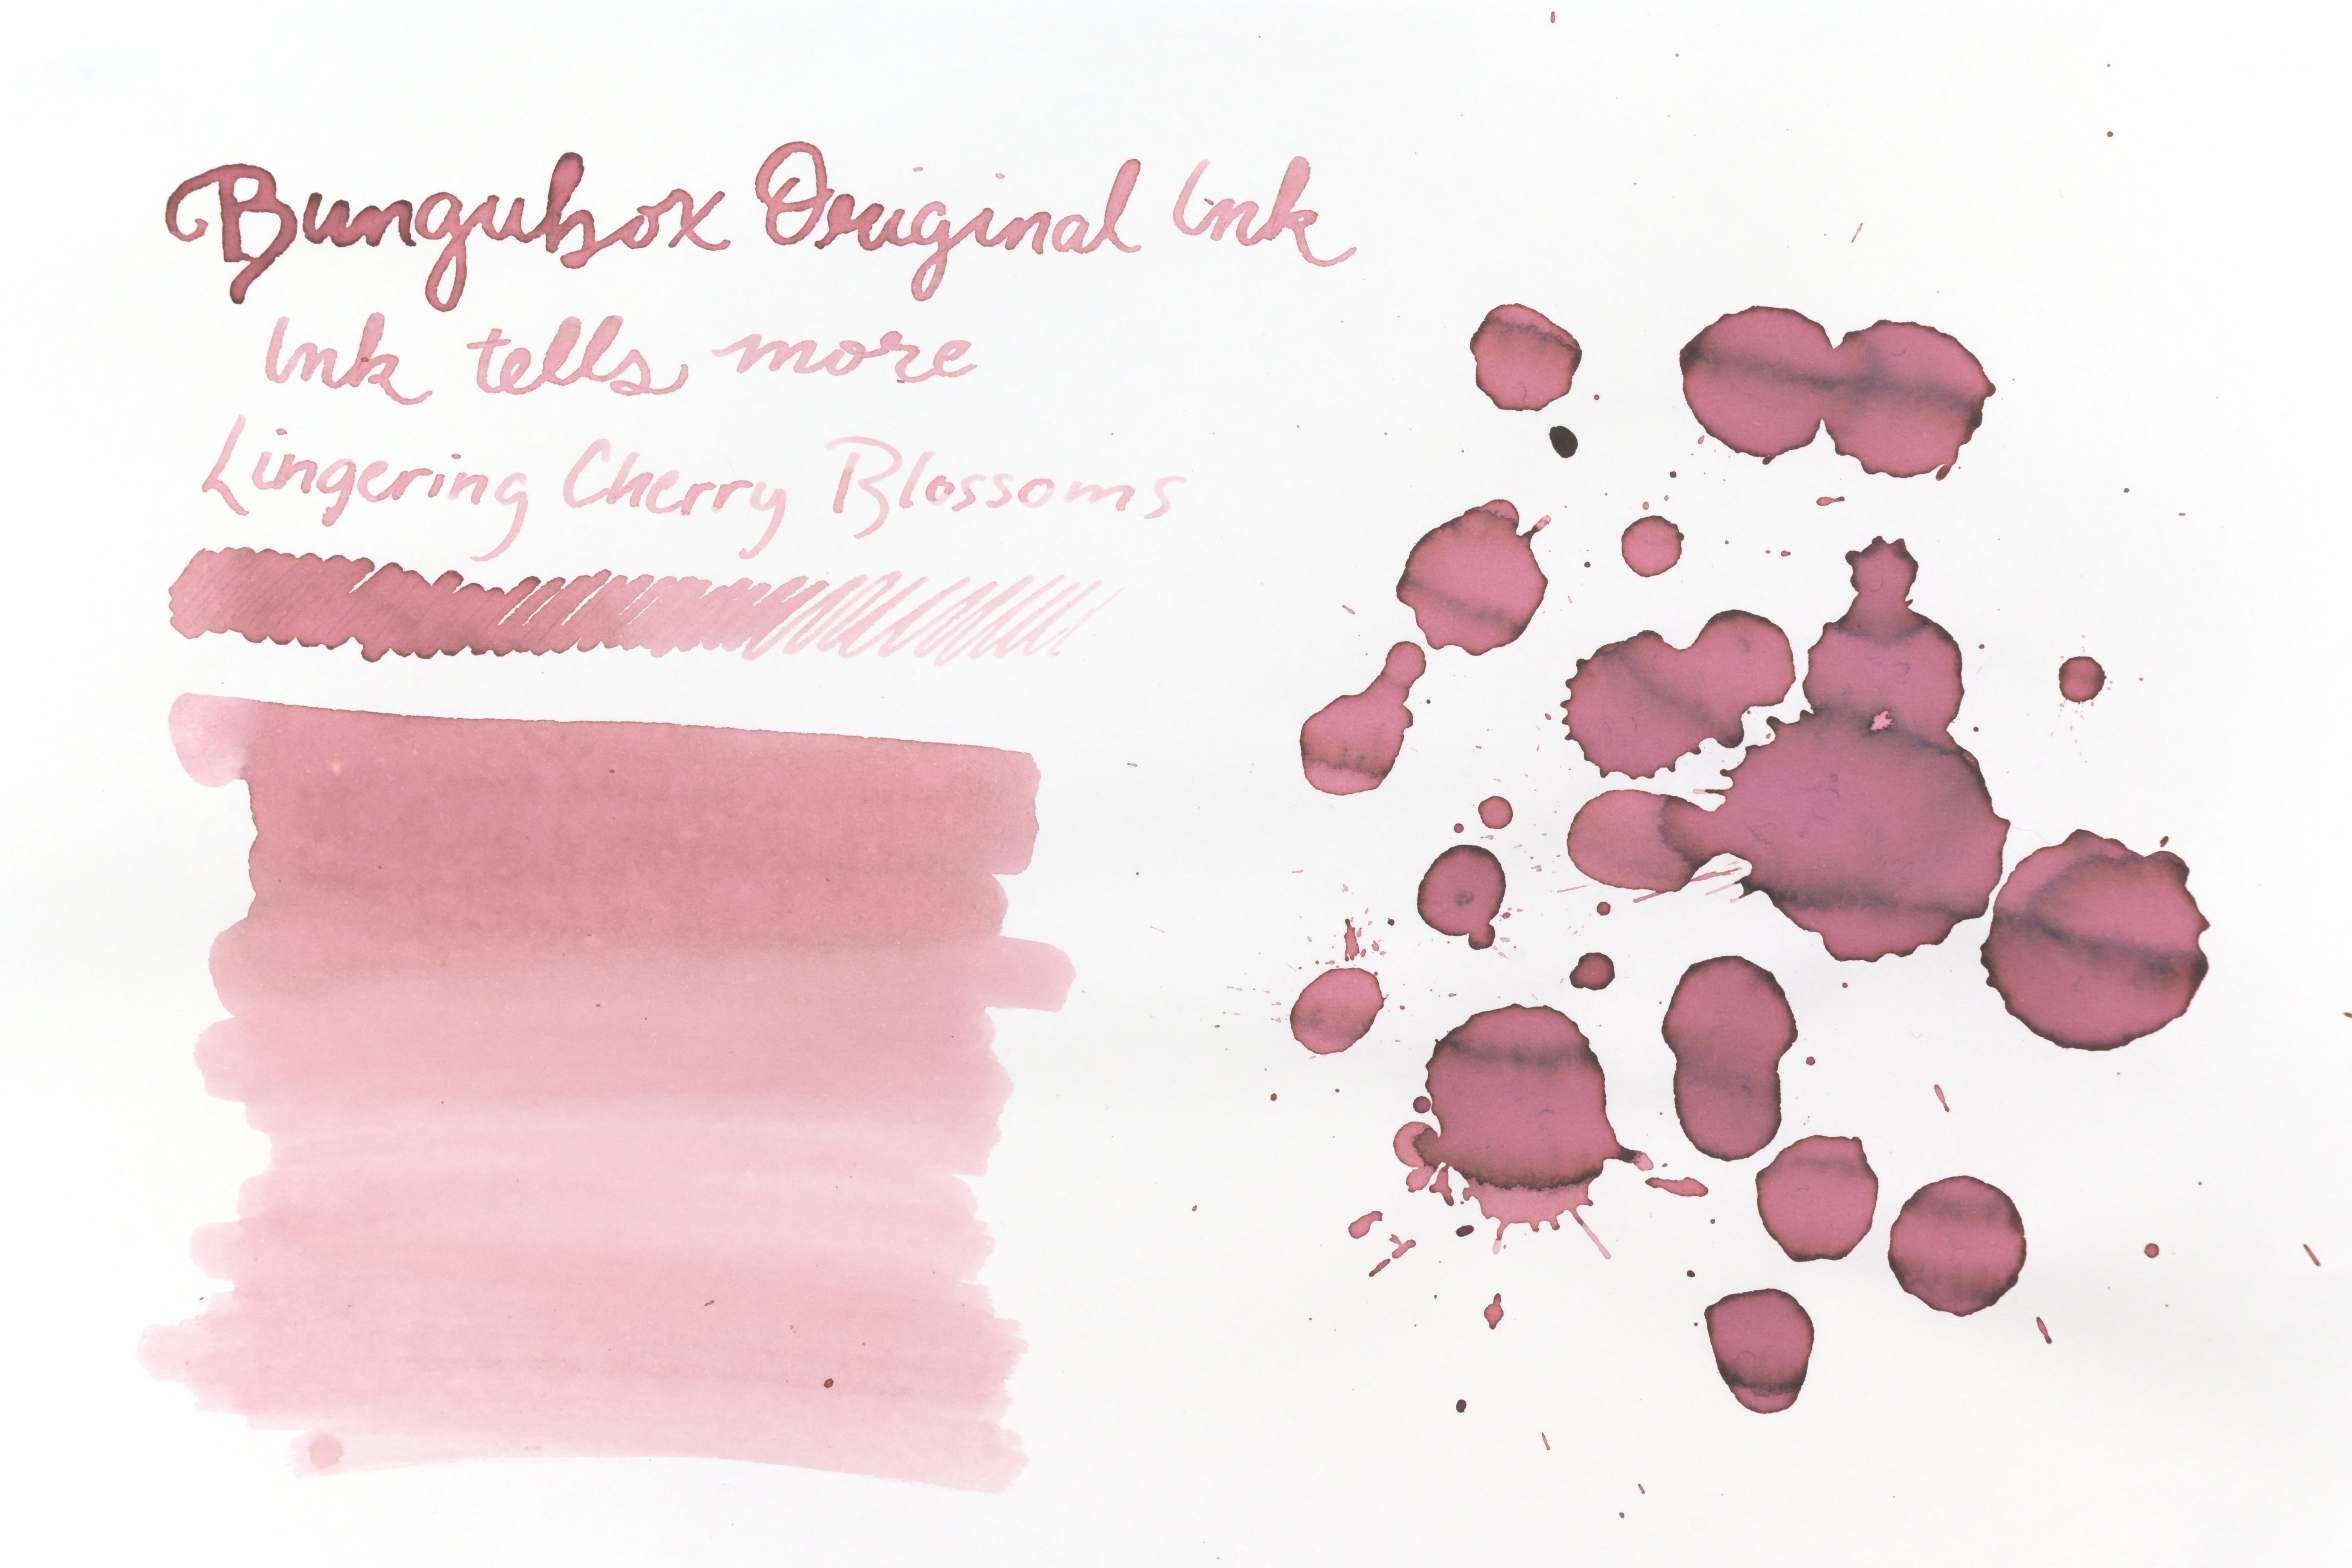 Bungubox Original Ink
Ink tells more
Lingering Cherry Blossoms